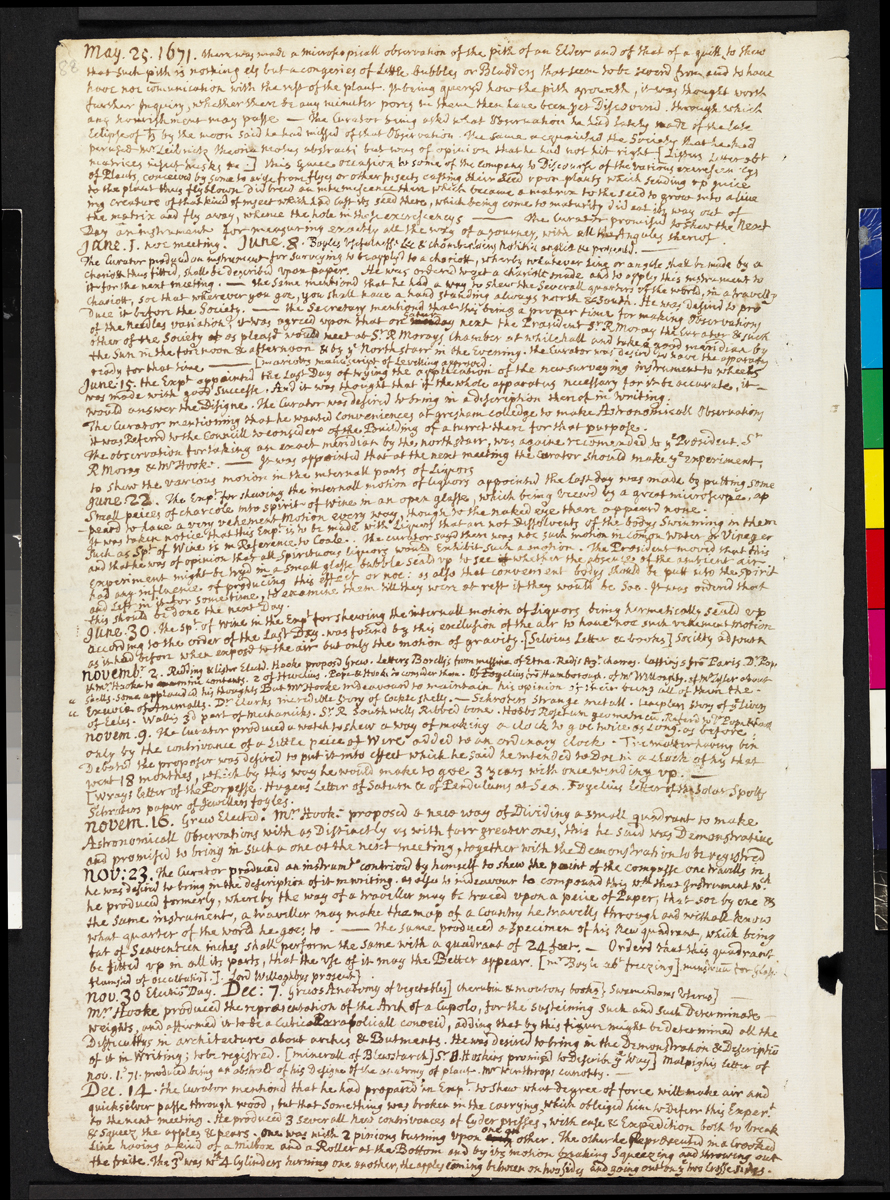 88
May. 25. 1671. there was made a microscopicall observation of the pith of an Elder and of that of a quill, to shew
that such pith is nothing els but a congeries of Little bubbles or Bladders that seem to be severd from and to have
have noe comunication with the rest of the plant. It being queryd how the pith groweth, it was thought worth
further Inquiry, whether there be any minuter pores in them then have been yet Discoverd. through which
any nourishment may passe — The Curator being asked what Observation he had lately made of the late
Eclipse of ♄ by the moon said he had missed of that Observation. The same acquainted the Society that he had
perused Mr Leibnitz Theoria motus abstracti but was of opinion that he had not hit right [Listers Letter abt
matrices insect husks &c] This Gave occasion to some of the Company to Discourse of the various excrescencys
of Plants, conceived by some to arise from flyes or other Insects casting their seed upon plants which sending up juice
to the plant thus flyblown did breed an intumescence there which became a matrix to the seed to grow into a live
ing creature of that kind of insect which had cast its seed there, which being come to maturity did eat its way out of
the matrix and fly away, whence the hole in those excrescencys — The Curator promised to shew the Next
Day an instrument for measuring exactly all the way of a journey, with all the Angules thereof.
June. 1. noe meeting. June. 8. Boyles Usefulness &c & Chamberlains notitia angliæ be presented.
The Curator produced an instrument for surveying to be applyd to a chariott, wherby whatever line or angle shall be made by a
chariott thus fitted, shall be described upon paper. He was orderd to get a chariot made and to apply this instrument to
it for the next meeting. — the same mentiond that he had a way to shew the Severall quarters of the world, in a travelling
Chariott, soe that wherever you goe, you shall have a hand standing always north & South. He was desired to pro
duce it before the Society. — the Secretary mentiond that this being a proper time for making Observations
of the Needles variation, it was agreed upon that on Saturday next the President Sr R Moray the Curator & such
other of the Society as please would meet at Sr R Morays chamber at whitehall and take a good meridian by
the Sun in the forenoon & afternoon & by ye North starr in the Evening. the Curator was desird to have the apparatus
ready for that time — [mariotts manuscript of Levelling approved.
June. 15. the Expt appointed the Last Day of trying the application of the new surveying instrument to wheels
was made with good Successe. And it was thought that if the whole apparatus necessary for it be accurate, it
would answer the Disigne. The Curator was desired to bring in a description therof in writing.
The Curator mentioning that he wanted conveniences at gresham colledge to make Astronomicall Observations
it was Referd to the Councill to consider of the Building of a turret there for that purpose.
The observation for taking an exact meridian by the north starr, was againe recomended to ye President. Sr
R Moray & Mr Hooke. — It was appointed that at the next meeting the Curator should make ye experiment,
to shew the various motion in the internall parts of Liquors
June. 22. The Expt for shewing the internall motion of liquors appointed the Last day was made by putting some
Small peices of charcole into spirit of wine in an open glasse, which being viewd by a great microscope, ap
peard to have a very vehement Motion every way, though to the naked eye there appeard none.
It was taken notice that this Expt is to be made with Liquors that are not Dissolvents of the bodys Swimming in them
Such as Spt of Wine is in Reference to Coale. The curator sayd there was not such motion in comon water & Vineger
and that he was of opinion that all Spirituous liquors would Exhibit such a motion. The President moved that this
experiment might be tryd in a small glasse bubble Seald up to see whether the absence of the ambient air
had any influence of producing this effect or noe: as also that convenient bodys should be put into the spirit
and Left in it for sometime, to examine them till they were at rest if they would be Soe. It was orderd that
this should be done the next Day.
June. 30. The Spt of Wine in the Expt for shewing the internall motion of Liquors being hermetically seald up
according to the order of the Last Day. was found by this exclusion of the air to have noe such vehement motion
as it had before when exposd to the air but only the motion of gravity. [Silvius Letter & books] Society adjourn
novembr 2. Redding & lister Elect. Hooke proposd Grew. Letters Borelli's from messina of Etna. Redi's Cassini's fro Paris. Dr Pop
of Hevelius. of Fogelius fro Hamborough. of Mr Willoughby. of Mr Lister about
Shells. some applauded his thoughts But Mr Hooke indeavourd to maintain his opinion of their being all of them the
“ Exuviæ of Animalls. Dr Clarks incredible story of Snake shells. Strange metall.
“ of Eeles. Wallis 3d part of mechanicks. Sr R Southwells Ribbed bone. Hobbs Rosetum geometricum. Referd to
novem. 9. The Curator produced a watch to shew a way of making a clock to goe twice as Long as before:
only by the contrivance of a Little peice of Wire added to an ordinary clock. The matter having bin
Debated the proposer was desired to put it into effect which he said he intended to Doe in a clock of his that
went 18 months, which by this way he would make to goe 3 years with once winding up. —
[Wrays letter of the Porpesse. Hugens Letter of Saturn & of Pendulums at Sea. Fogelius Letter of the Solar Spotts
paper of Jewellers foyles.
novem. 16. Grew Elected. Mr Hooke proposed a new way of Dividing a small quadrant to make
Astronomicall Observations with as Distinctly as with farr greater ones, this he said was Demonstrative
and promised to bring in such a one at the next meeting, together with the Demonstration to be registred
Nov: 23. The Curator produced an instrumt contrived by himself to shew the point of the compasse one travells in
he was desired to bring in the description of it in writing. as also to indeavour to compound this wth that Instrument wch
he produced formerly, wherby the way of a traveller may be traced upon a peice of Paper, that soe by one &
the same instrument, a traveller may make the map of a Country he travells through and withall know
what quarter of the world he goes to. — The same produced a Specimen of his New quadrant, which being
but of Seaventeen inches shall perform the same with a quadrant of 24 feet. — Orderd that this quadrant
be fitted up in all its parts, that the Use of it may the Better appear. [mr Boyle abt freezing]
flamsted of occultations]. Lord Willoughby present]
nov. 30 Election Day. Dec: 7. Grews Anatomy of Vegetables] cherubin & moutons books] Swammerdams Uterus]
Mr Hooke produced the representation of the Arch of a Cupolo, for the sustaining such and such Determinate
weights, and affirmed it to be a Cubico Parabolicall conoeid, adding that by this figure might be determined all the
Difficultys in architecture about arches & Butments. He was desired to bring in the Demonstration & Description
of it in Writing; to be registred. [minerall of Blewstarch] Sr I. Hoskins promised to Describe ye Way] Malpighis letter of
nov. 1. 71. produced being an abstract of his Designe of the anatomy of plants. Mr Winthrops curiosity. —
Dec. 14. the Curator mentiond that he had prepared an Expt to shew what degree of force will make air and
quicksilver passe through wood, but that something was broken in the carrying, which obleiged him to defer this Expert
to the next meeting. He produced 3 Severall new contrivances of Cyder presses, with ease & Expedition both to break
& Squeez the apples & pears. one was with 2 pinions turning upon one an other. The other he Represented in a Crooked
Line having a kind of a millbox and a Roller at the Bottom and by its motion breaking Squeezing and throwing out
the fruite. The 3d was wth 4 Cylinders turning one another, the apples coming between on two sides and going out on ye two Crosse sides.